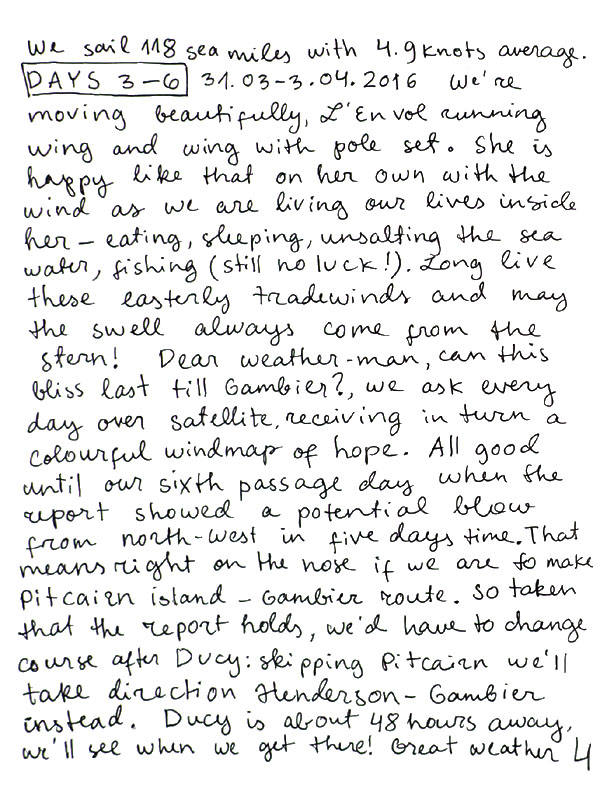 We sail 118 sea miles with 4.9 knots average.
DAYS 3-6 31.03-3.04.2016 We're
moving beautifully, L'Envol running
wing and wing with pole set. She is
happy like that on her own with the
wind as we are living our lives inside
her - eating, sleeping, unsalting the sea
water, fishing (still no luck!). Long live
these easterly tradewinds and may
the swell always come from the
stern! Dear weather-man, can this
bliss last till Gambier?, we ask every
day over satellite, receiving in turn a
colourful windmap of hope. All good
until our sixth passage day when the
report showed a potential blow
from north-west in five days time. That
means right on the nose if we are to make
Pitcairn island - Gambier route. So taken
that the report holds, we'd have to change
course after Ducy: skipping Pitcairn we'll
take direction Henderson - Gambier
instead. Ducy is about 48 hours away,
we'll see when we get there! Great weather 4